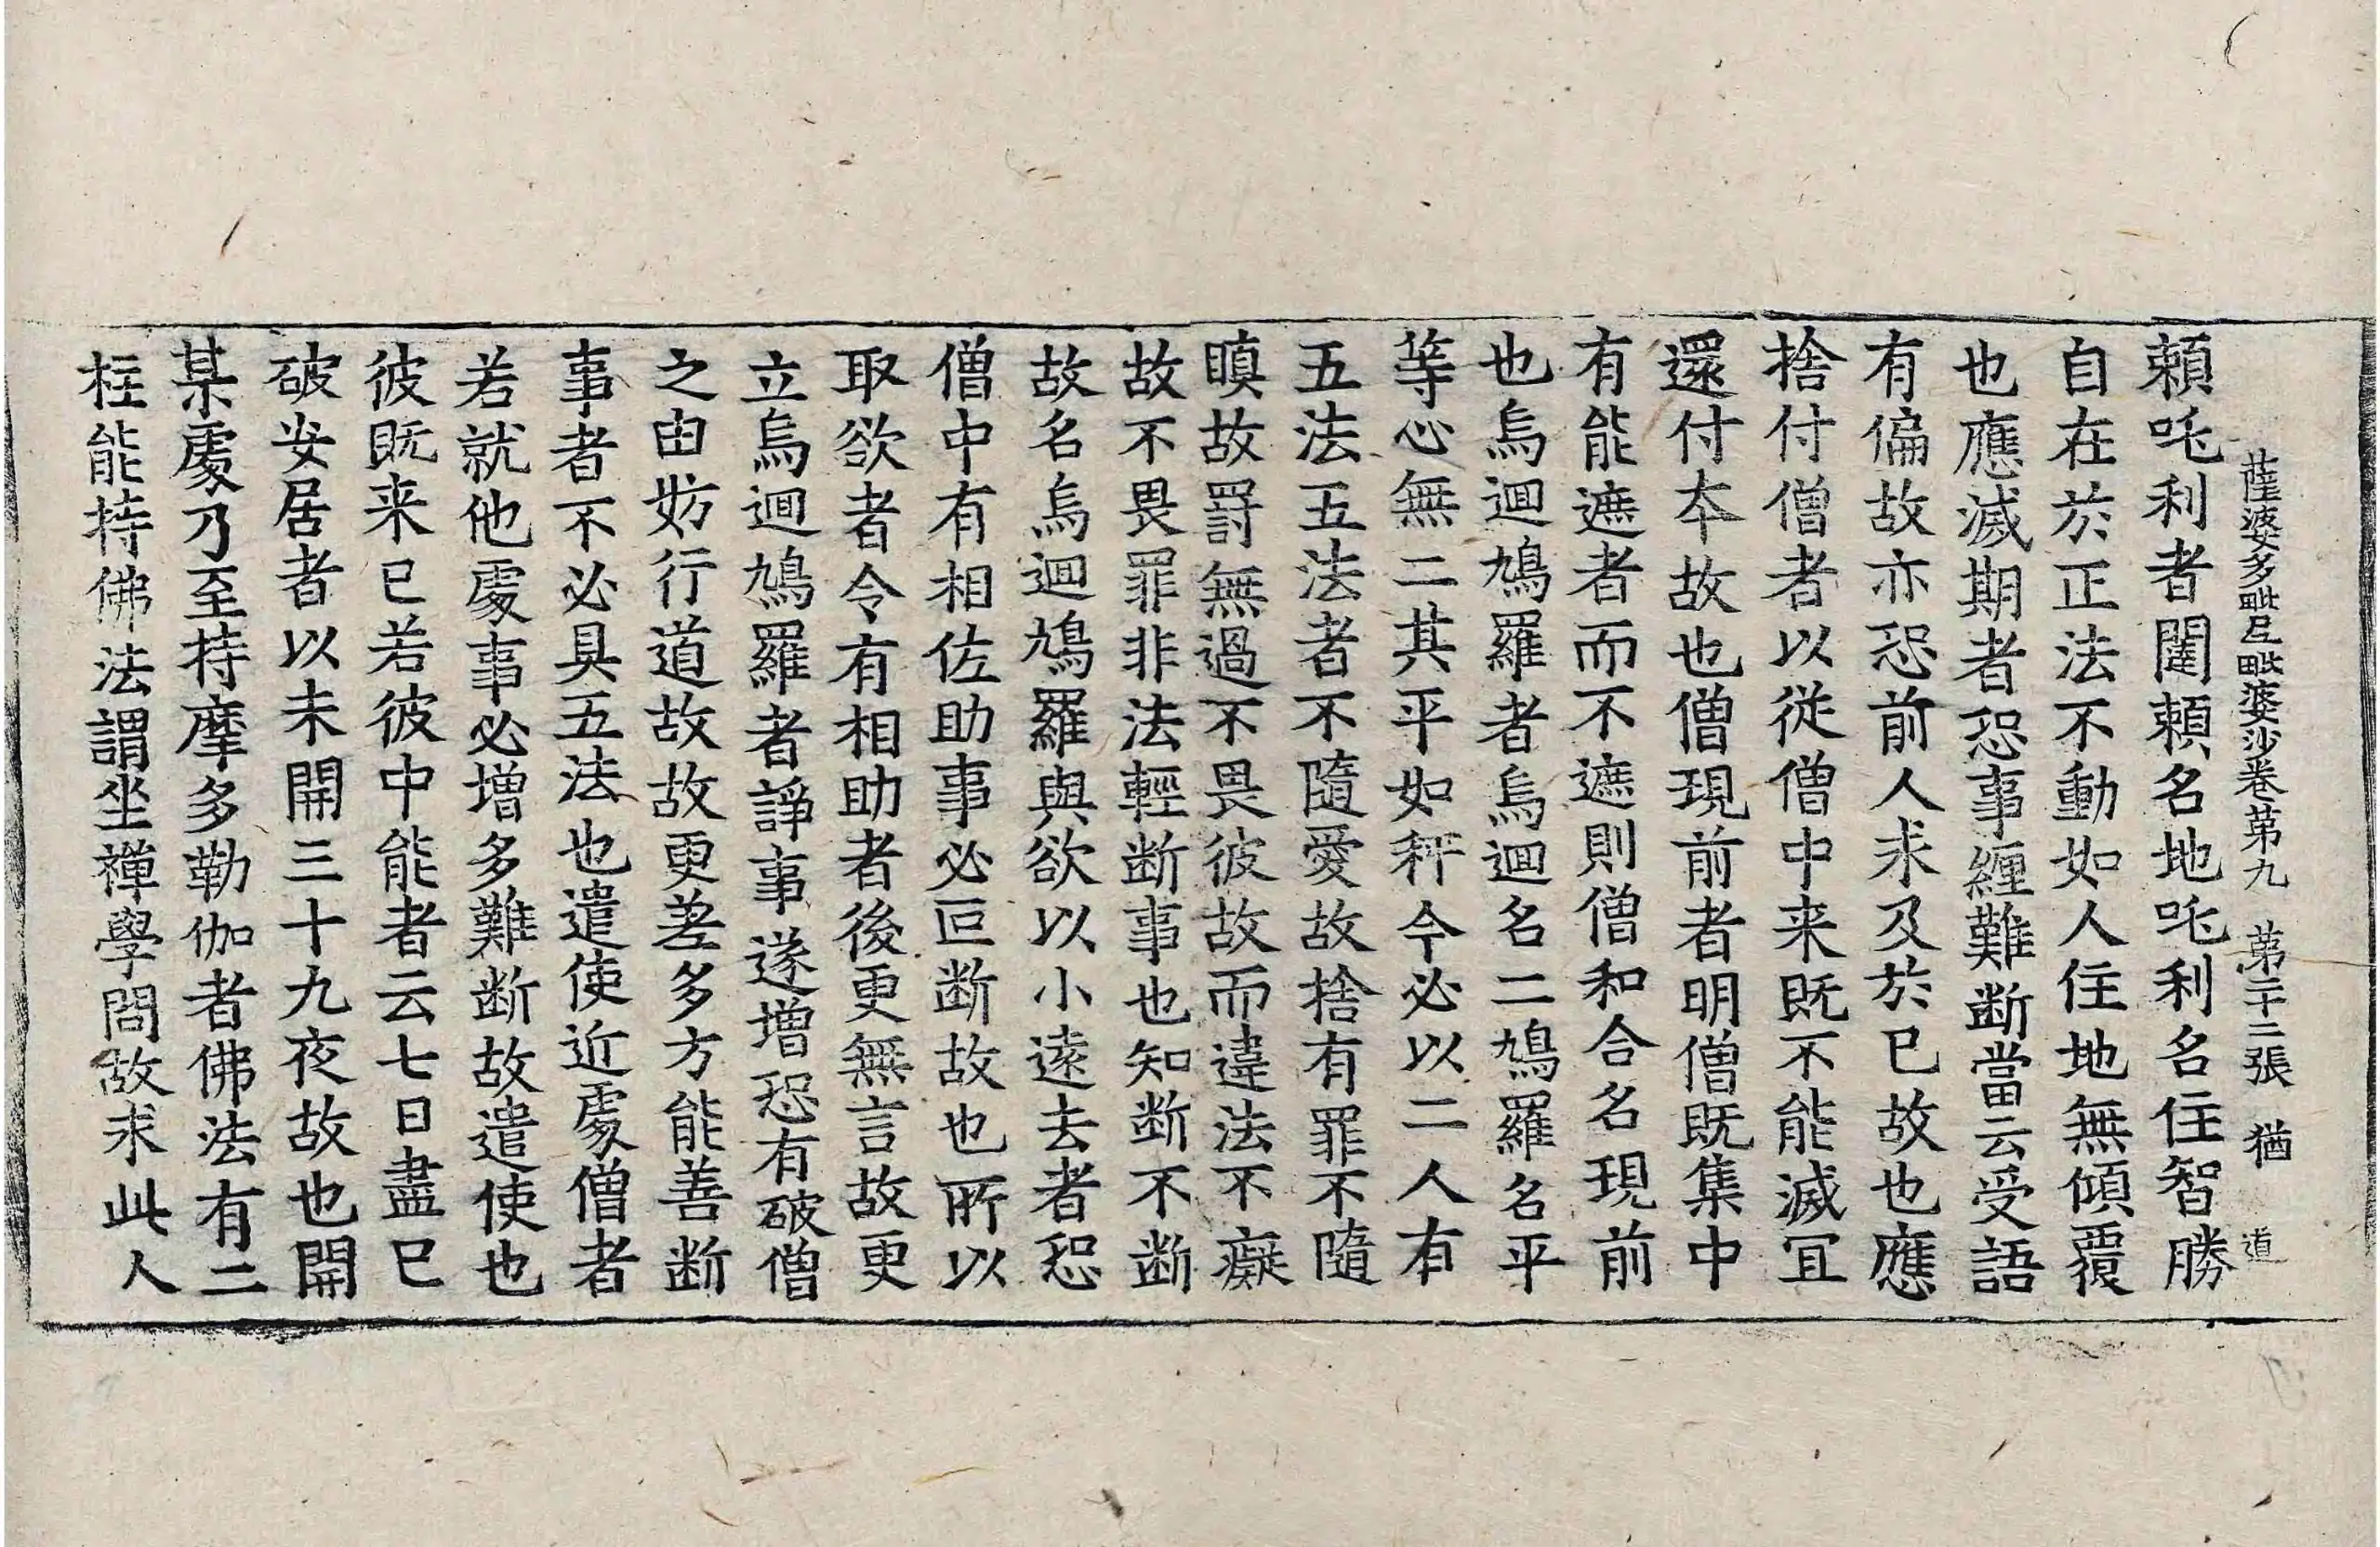 薩婆多毗尼毗婆沙卷第九　第二十二張　猶　道
頼吒利者闥頼名地吒利名住智勝
自在於正法不動如人住地無傾覆
也應滅期者恐事纏難斷當云受語
有偏故亦恐前人求及於已故也應
捨付僧者以従僧中来既不能滅冝
還付夲故也僧現前者明僧既集中
有能遮者而不遮則僧和合名現前
也烏迴鳩羅者烏迴名二鳩羅名平
等心無二其平如秤今必以二人有
五法五法者不隨愛故捨有罪不隨
瞋故罸無過不畏彼故而違法不癡
故不畏罪非法輕断事也知断不断
故名烏迴鳩羅與欲以小遠去者恐
僧中有相佐助事必叵断故也所以
取欲者令有相助者後更無言故更
立烏迴鳩羅者諍事遂增恐有破僧
之由妨行道故故更差多方能善断
事者不必具五法也遣使近處僧者
若就他處事必增多難断故遣使也
彼既来已若彼中能者云七日盡已
破安居者以未開三十九夜故也開
某處乃至持摩多勒伽者佛法有二
柱能持佛法謂坐禪學問故求此人